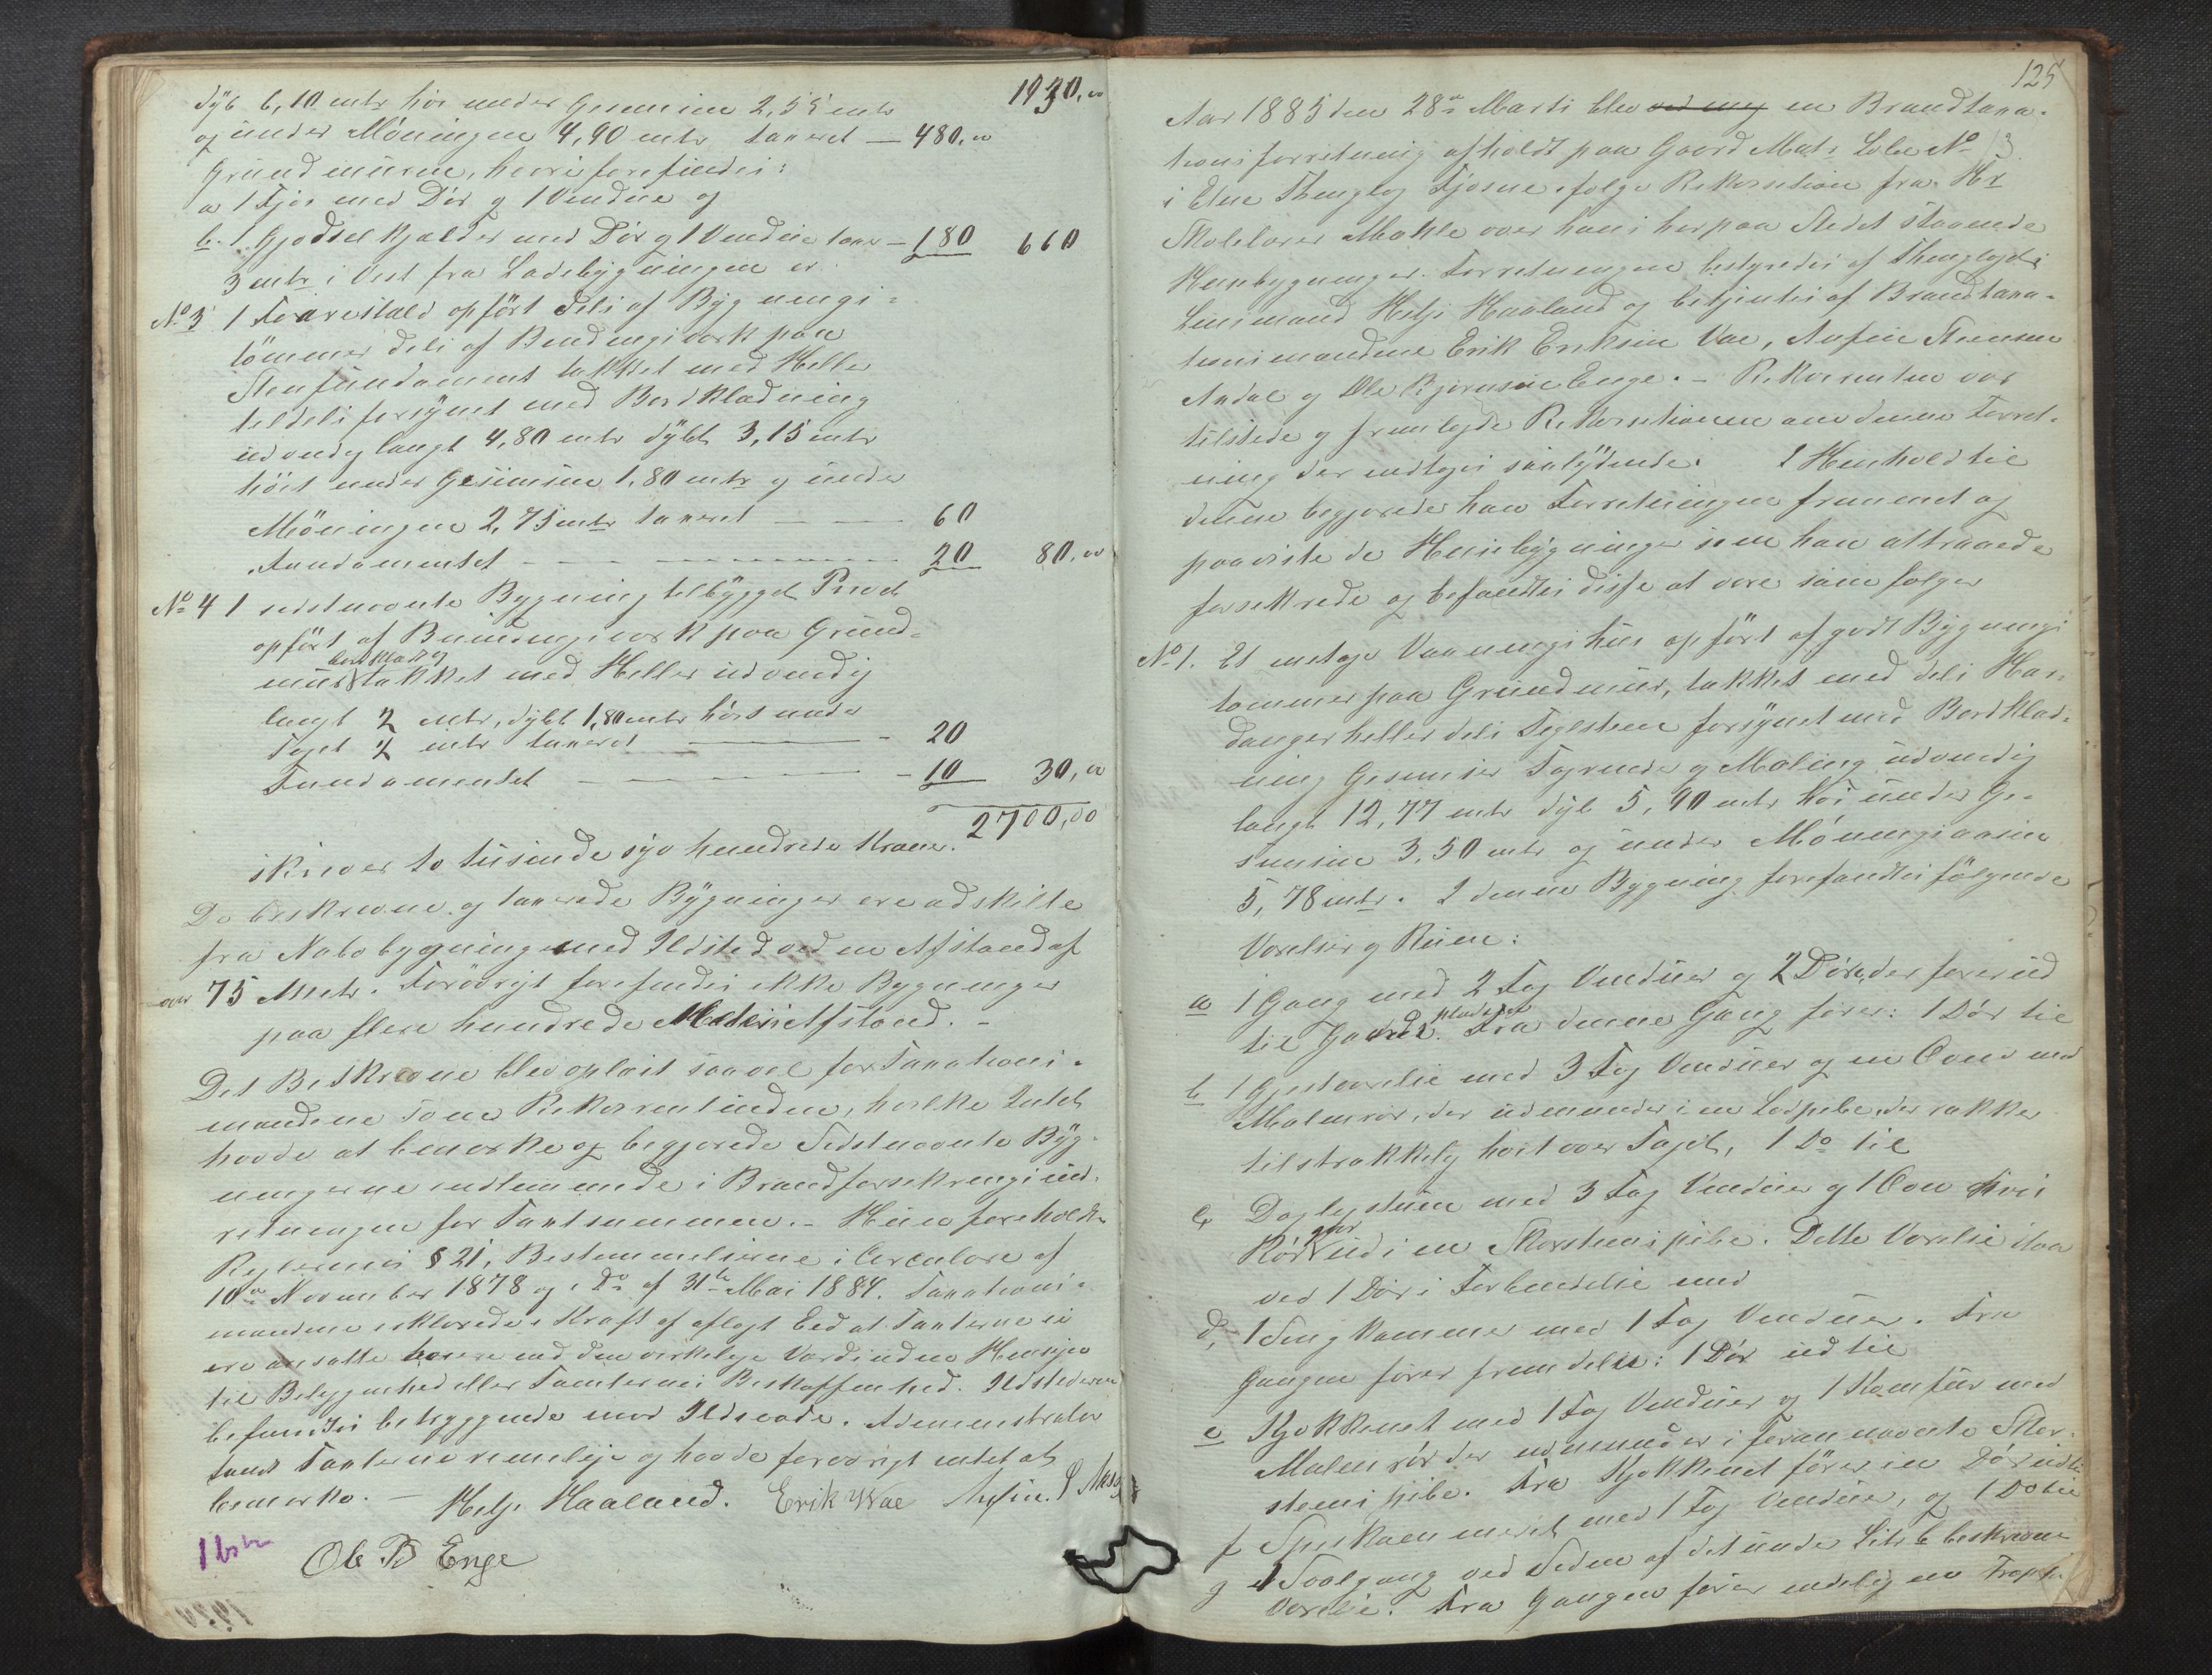 1930,00
dyb 6,10 mtr høi under Gesimsen 2,55 mtr
og under Møningen 4,90 mtr taxeret — 480,00
Grundmuren, hvori forefindes:
a 1 Fjøs med Dør og 1 Vindue og
b. 1 Gjødselkjælder med Dør og 1 Vindue tax — 180 660
3 mtr i Vest fra Ladebygningen er
No 3 1 Faarestald opført dels af Bygnings-
tömmer dels af Bindingsværk paa
Stenfundament tækket med Heller
tildels forsynet med Bordklædning
udvendig langt 4,80 mtr dybt 3,15 mtr
høit under Gesimsen 1,80 mtr og under
Møningen 2,75 mtr taxeret — — 60
Fundamentet — — — 20 80,00
No 4 1 sidstnævnte Bygning tilbygget Privet
opført af Bindingsværk paa Grund-
bordklædt og
mur tækket med Heller udvendig
langt 2 mtr, dybt 1,80 mtr høit under
Taget 2 mtr taxeret — 20
Fundamentet — — 10 30,00
2700,00
skriver to tusinde syv hundrede Kroner.
De beskrevne og taxerede Bygninger ere adskilte
fra Nabobygninger med Ildsted ved en Afstand af
over 75 Metr. Forøvrigt forefindes ikke Bygninger
paa flere hundrede Meters Afstand. —
Det Beskrevne blev oplæst saavel for Taxations-
mændene som Rekvirentinden, hvilke Intet
havde at bemærke og begjærede Sidstnævnte Byg-
ningerne indlemmede i Brandforsikringsind-
retningen for Taxtsummen. — Hun foreholdtes
Reglernes § 21, Bestemmelserne i Circulære af
10de November 1878 og Do af 31te Mai 1884. Taxations-
mændene erklærede i Kraft af aflagt Eed at Taxterne ei
ere ansatte høiere end den virkelige Værdi uden Hensyn
til Beliggenhed eller Tomternes Beskaffenhed. Ildstederne
befandtes betryggende mod Ildsvaade. Administrator
fandt Taxterne rimelige og havde forøvrigt intet at
bemærke. — Helje Haaland. Erik Wae Anfin S
Ole B Enge
125
Aar 1885 den 28de Marts blev ved mig en Brandtaxa-
tionsforretning afholdt paa Gaard Matr Løbe No 13
i Etne Thinglag Tjosne ifølge Rekvisition fra Hr
Skolelærer Mæhle over hans herpaa Stedet staaende
Huusbygninger. Forretningen bestyredes af Thinglagets
Lensmand Helje Haaland og betjentes af Brandtaxa-
tionsmændene Erik Eriksen Vae, Anfin Steensen
Andal og Ole Bjørnsen Enge. — Rekvirenten var
tilstede og fremlagde Rekvisitionen om denne Forret-
ning der indtages saalydende: I Henhold til
denne begjærede han Forretningen fremmet og
paaviste de Huusbygninger som han attraaede
forsikrede og befandtes disse at være som følger
No 1. Et etages Vaaningshus opført af godt Bygnings
tømmer paa Grundmur, tækket med dels Har-
dangerheller dels Teglsteen forsynet med Bordklæd-
ning Gesimser Tagrender og Maling udvendig
langt 12,77 mtr dyb 5,90 mtr høi under Ge-
simsen 3,50 mtr og under Møningsaasen
5,78 mtr. I denne Bygning forefandtes følgende
Værelser og Rum:
a 1 Gang med 2 Fag Vinduer og 2 Døre, der fører ud
pladsen
til Gaards. Fra denne Gang fører: 1 Dør til
b 1 Gjestværelse med 3 Fag Vinduer og en Ovn med
Malmrør, der udmunder i en Lodpibe, der rækker
tilstrækkelig høit over Taget, 1 Do til
c, Dagligstuen med 3 Fag Vinduer og 1 Ovn hvis
gaar
Rør ud i en Skorstenspibe. Dette Værelse staar
ved 1 Dør i Forbindelse med
d, 1 Sengkammer med 1 Fag Vinduer. Fra
Gangen fører fremdeles: 1 Dør ud til
e Kjøkkenet med 1 Fag Vinduer og 1 Komfur med
Malmrør der udmunder i førnævnte Skor-
stenspibe. Fra Kjøkkenet fører en Dør ind til
f Spiskammeret med 1 Fag Vinduer, og 1 Do til
g 1 Svalgang ved Siden af det under Litr b beskrevne
Værelse. Fra Gangen fører endelig en Trappe